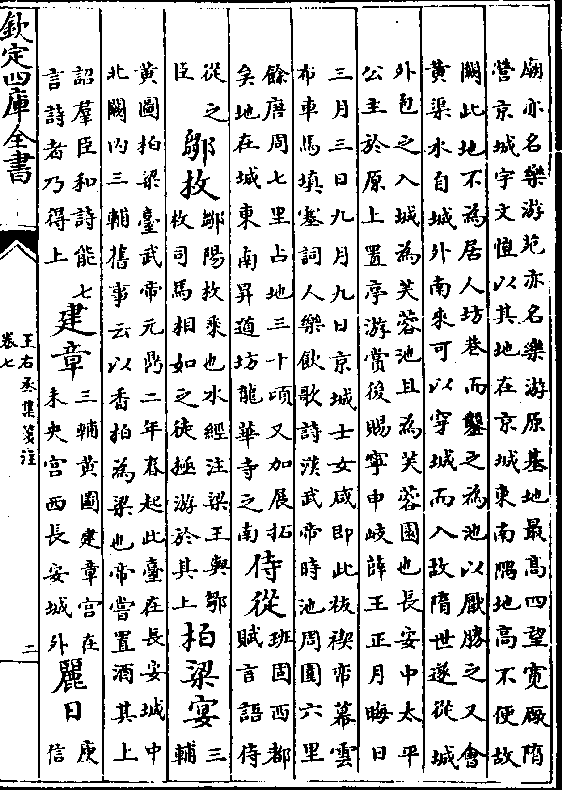 廟亦名樂游苑亦名樂游原基地最高四望寛厰隋
營京城宇文愷以其地在京城東南隅地高不便故
闕此地不為居人坊巷而鑿之為池以厭勝之又會
黄渠水自城外南來可以穿城而入故隋世遂從城
外包之入城為芙蓉池且為芙蓉園也長安中太平
公主於原上置亭游賞後賜寧申岐薛王正月晦日
三月三日九月九日京城士女咸即此祓禊帟幕雲
布車馬填塞詞人樂飲歌詩漢武帝時池周圍六里
餘唐周七里占地三十頃又加展拓
矣地在城東南昇道坊龍華寺之南
侍從
班固西都
賦言語侍
從之
臣
鄒枚
鄒陽枚乘也水經注梁王與鄒
枚司馬相如之徒極游於其上
柏梁宴
三
輔
黄圖柏梁臺武帝元鼎二年春起此臺在長安城中
北闕内三輔舊事云以香柏為梁也帝嘗置酒其上
詔羣臣和詩能七
言詩者乃得上
建章
三輔黄圖建章宮在
未央宮西長安城外
麗日
庚
信
欽定四庫全書
王右丞集箋注
卷七
二